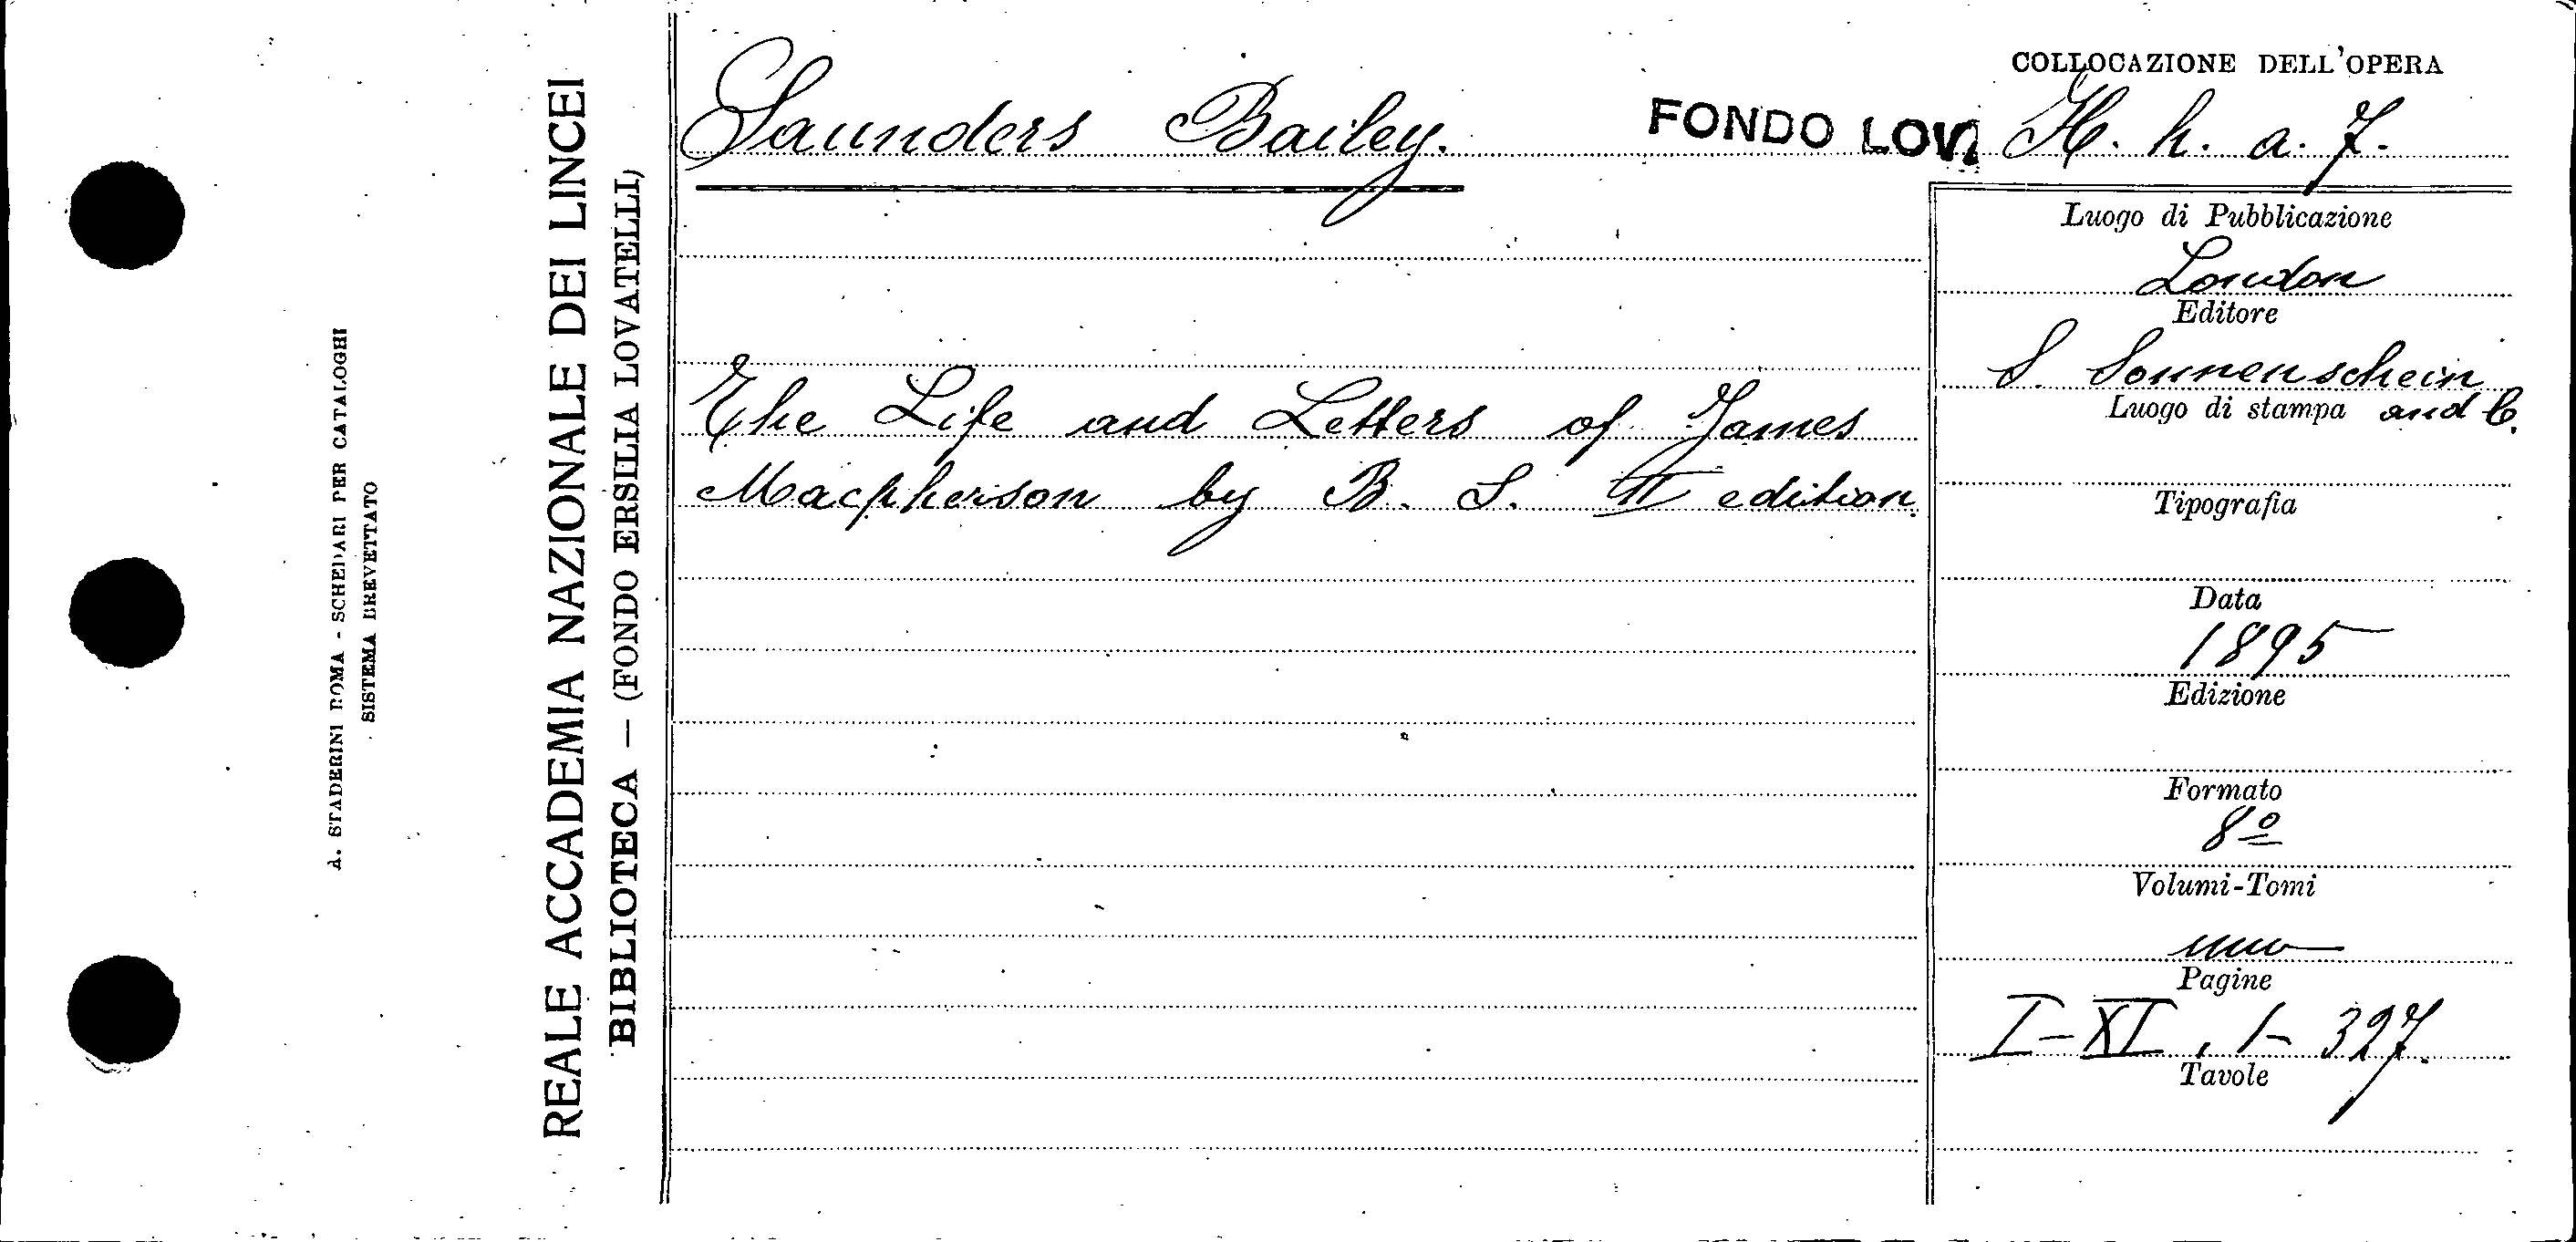 A. STADERINI ROMA - SCHEDARI PER CATALOGHI
SISTEMA BREVETTATO
REALE ACCADEMIA NAZIONALE DEI LINCEI
BIBLIOTECA — (FONDO ERSILIA LOVATELLI)
Saunders Bailey.
FONDO LOV
The Life and Letters of James
Macpherson by B. S. II edition.
COLLOCAZIONE DELL'OPERA
H. h. a. 7.
Luogo di Pubblicazione
London
Editore
S. Sonnenschein
and C.
Luogo di stampa
Tipografia
Data
1895
Edizione
Formato
8º
Volumi-Tomi
uno
Pagine
I-XI, 1-327.
Tavole